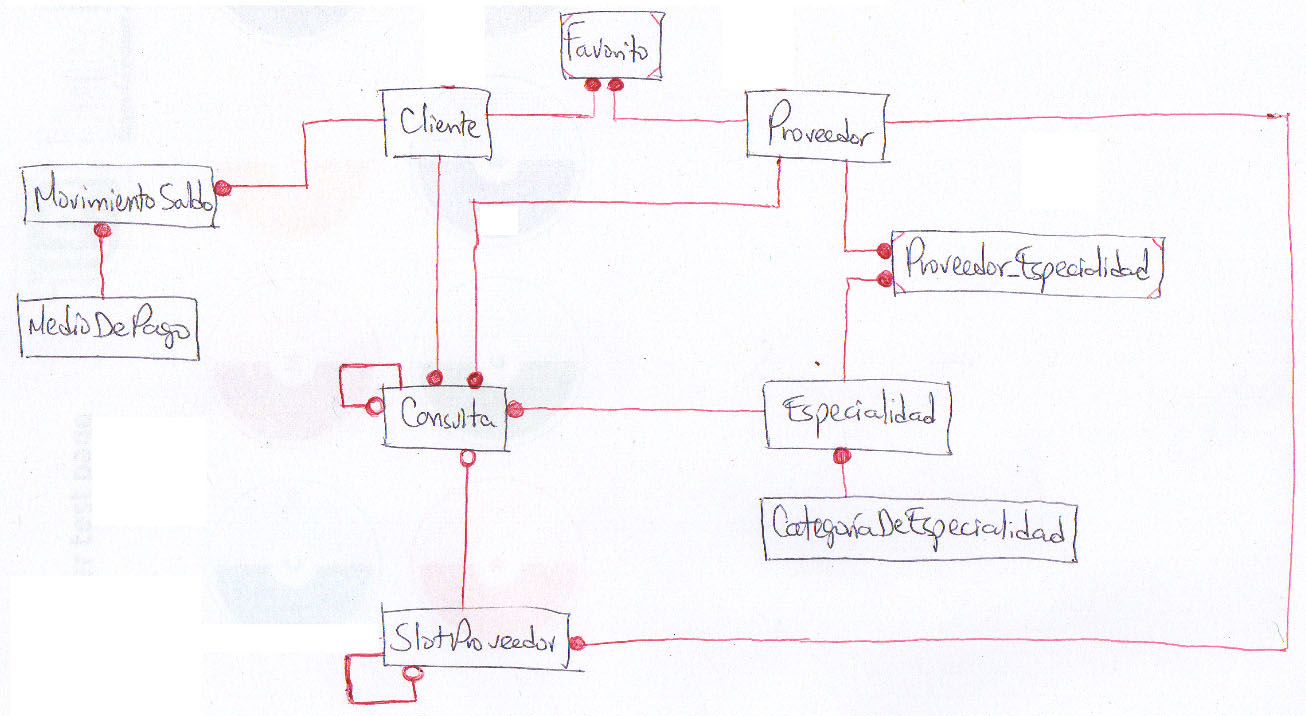 Favorito
Cliente
Proveedor
MovimientoSaldo
Proveedor_Especialidad
MedioDePago
Consulta
Especialidad
CategoríaDeEspecialidad
SlotProveedor